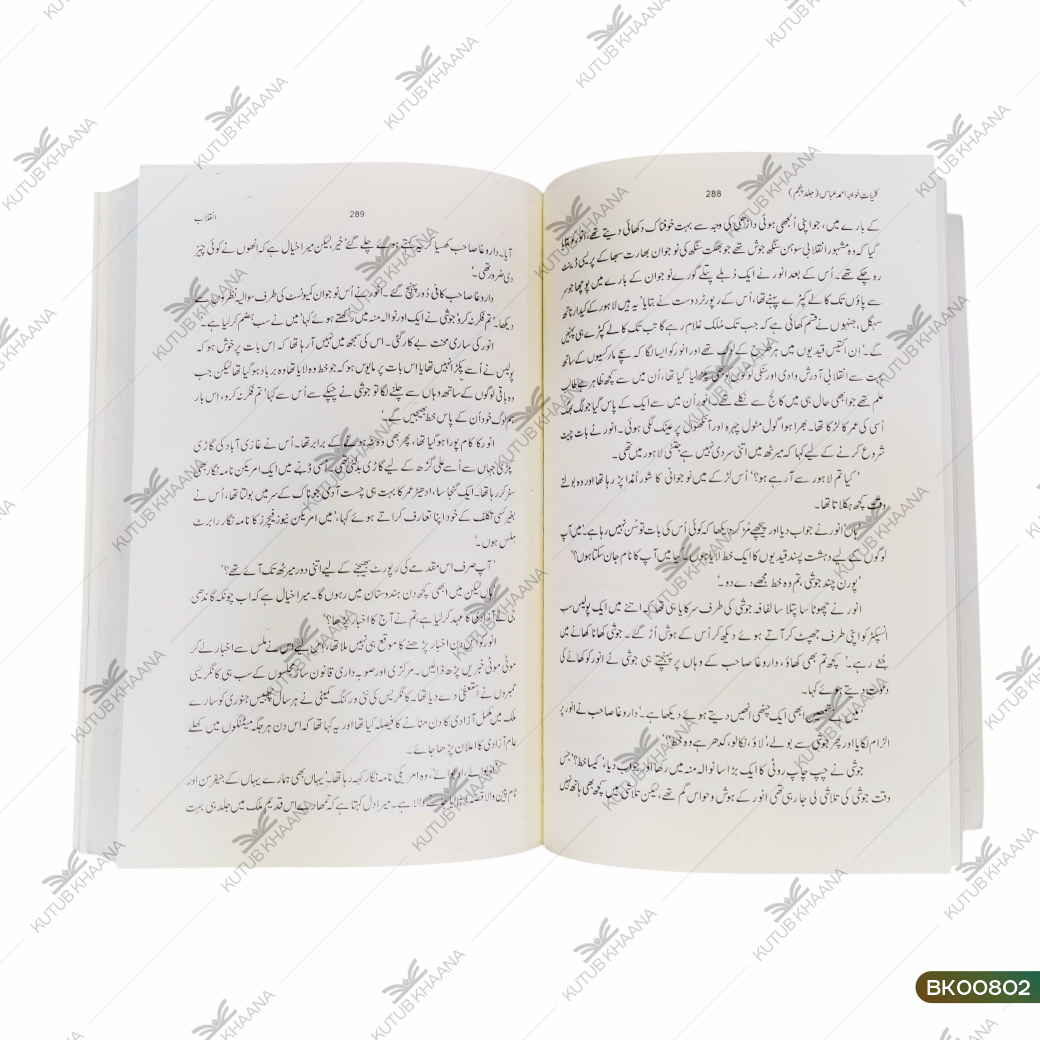 کلیاتِ خواجہ احمد عباس (جلد پنجم)
288
کے بارے میں، جو اپنی اُلجھی ہوئی داڑھی کی وجہ سے بہت خوفناک دکھائی دیتے تھے، انور کو بتلایا
گیا کہ وہ مشہور انقلابی سوہن سنگھ جوش تھے جو بھگت سنگھ کی نوجوان بھارت سبھا کے پریسی ڈینٹ
رہ چکے تھے۔ اُس کے بعد انور نے ایک دُبلے پتلے گورے نوجوان کے بارے میں پوچھا جو سر
سے پاؤں تک کالے کپڑے پہنے تھا، اُس کے رپورٹر دوست نے بتایا 'یہ ہیں لاہور کے کیدار ناتھ
سہگل، جنہوں نے قسم کھائی ہے کہ جب تک مُلک غلام رہے گا تب تک کالے کپڑے ہی پہنیں
گے۔' ان اکتیس قیدیوں میں ہر طرح کے لوگ تھے اور انور کو ایسا لگا کہ سچے مارکسیوں کے ساتھ
بہت سے انقلابی آدرش وادی اور سنکی لوگوں کو بھی پکڑ لیا گیا تھا، اُن میں سے کچھ ظاہر ہے طالب
علم تھے جو ابھی حال ہی میں کالج سے نکلے تھے۔ انور اُن میں سے ایک کے پاس گیا جو لگ بھگ
اُسی کی عمر کا لڑکا تھا۔ بھرا ہوا گول مٹول چہرہ اور آنکھوں پر عینک لگی ہوئی۔ انور نے بات چیت
شروع کرنے کے لیے کہا کہ میرٹھ میں اتنی سردی نہیں ہے جتنی لاہور میں تھی۔
'کیا تم لاہور سے آ رہے ہو؟' اُس لڑکے میں نوجوانی کا شور اُمڈا پڑ رہا تھا اور وہ بولتے
وقت کچھ ہکلاتا تھا۔
'ہاں' انور نے جواب دیا اور پیچھے مُڑ کر دیکھا کہ کوئی اُس کی بات تو سُن نہیں رہا ہے۔ 'میں آپ
لوگوں کے لیے دہشت پسند قیدیوں کا ایک خط لایا ہوں۔ کیا میں آپ کا نام جان سکتا ہوں؟'
'پورن چند جوشی، تم وہ خط مجھے دے دو۔'
انور نے چھوٹا سا پتلا سا لفافہ جوشی کی طرف سرکایا ہی تھا کہ اتنے میں ایک پولیس سب
انسپکٹر کو اپنی طرف جھپٹ کر آتے ہوئے دیکھ کر اُس کے ہوش اُڑ گئے۔ جوشی کھانا کھانے میں
جُٹے رہے۔' کچھ تم بھی کھاؤ، داروغا صاحب کے وہاں پر پہنچتے ہی جوشی نے انور کو کھانے کی
دعوت دیتے ہوئے کہا۔
'میں نے تمہیں ابھی ایک چٹھی انھیں دیتے ہوئے دیکھا ہے۔' داروغا صاحب نے انور پر
الزام لگایا اور پھر جوشی سے بولے، 'لاؤ، نکالو، کدھر ہے وہ خط؟'
جوشی نے چپ چاپ روٹی کا ایک بڑا سا نوالہ منہ میں رکھا اور جواب دیا، 'کیسا خط؟' جس
وقت جوشی کی تلاشی لی جا رہی تھی انور کے ہوش و حواس گم تھے، لیکن تلاشی میں کچھ بھی ہاتھ نہیں
289
انقلاب
آیا۔ داروغا صاحب کھسیا کر یہ کہتے ہوئے چلے گئے 'خیر، لیکن میرا خیال ہے کہ انھوں نے کوئی چیز
دی ضرور تھی۔'
داروغا صاحب کافی دُور پہنچ گئے۔ انور نے اُس نوجوان کمیونسٹ کی طرف سوالیہ نظروں سے
دیکھا۔ 'تم فکر نہ کرو' جوشی نے ایک اور نوالہ منہ میں رکھتے ہوئے کہا 'میں نے سب ہضم کر لیا ہے۔'
انور کی ساری محنت بے کار گئی۔ اس کی سمجھ میں نہیں آ رہا تھا کہ اس بات پر خوش ہو کہ
پولیس نے اُسے پکڑا نہیں تھا یا اس بات پر مایوس ہو کہ جو خط وہ لایا تھا وہ برباد ہو گیا تھا لیکن جب
وہ باقی لوگوں کے ساتھ وہاں سے چلنے لگا تو جوشی نے چپکے سے اُس سے کہا 'تم فکر نہ کرو، اس بار
ہم لوگ خود اُن کے پاس خط بھیجیں گے۔'
انور کا کام پورا ہو گیا تھا، پھر بھی وہ نہ ہونے کے برابر تھا۔ اُس نے غازی آباد کی گاڑی
پکڑی جہاں سے اُسے علی گڑھ کے لیے گاڑی بدلنی تھی۔ اُسی ڈبّے میں ایک امریکن نامہ نگار بھی
سفر کر رہا تھا۔ ایک گنجا سا، ادھیڑ عمر کا بہت ہی چست آدمی جو ناک کے سر میں بولتا تھا، اُس نے
بغیر کسی تکلف کے خود اپنا تعارف کراتے ہوئے کہا، 'میں امریکن نیوز فیچرز کا نامہ نگار رابرٹ
ملس ہوں۔'
'آپ صرف اس مقدمے کی رپورٹ بھیجنے کے لیے اتنی دور میرٹھ تک آئے تھے؟'
'ہاں لیکن میں ابھی کچھ دن ہندوستان میں رہوں گا۔ میرا خیال ہے کہ اب چونکہ گاندھی
جی نے آزادی کا عہد کر لیا ہے، تم نے آج کا اخبار پڑھا؟'
انور کو اس دن اخبار پڑھنے کا موقع ہی نہیں ملا تھا، اس لیے اس نے ملس سے اخبار لے کر
موٹی موٹی خبریں پڑھ ڈالیں۔ مرکزی اور صوبہ داری قانون ساز مجلسوں کے سب ہی کانگریسی
ممبروں نے استعفیٰ دے دیا تھا۔ کانگریس کی نئی ورکنگ کمیٹی نے ہر سال چھبیس جنوری کو سارے
ملک میں مکمل آزادی کا دن منانے کا فیصلہ کیا تھا اور یہ کہا تھا کہ اس دن ہر جگہ میٹنگوں میں کھلے
عام آزادی کا اعلان پڑھا جائے۔
وہ امریکی نامہ نگار کہہ رہا تھا۔ 'یہاں بھی ہمارے یہاں کے جیفرسن اور
ٹام پین والا قصہ دہرایا جانے والا ہے۔ میرا دل کہتا ہے کہ تمھارے اس قدیم ملک میں جلد ہی بہت
KUTUB KHAANA
BK00802